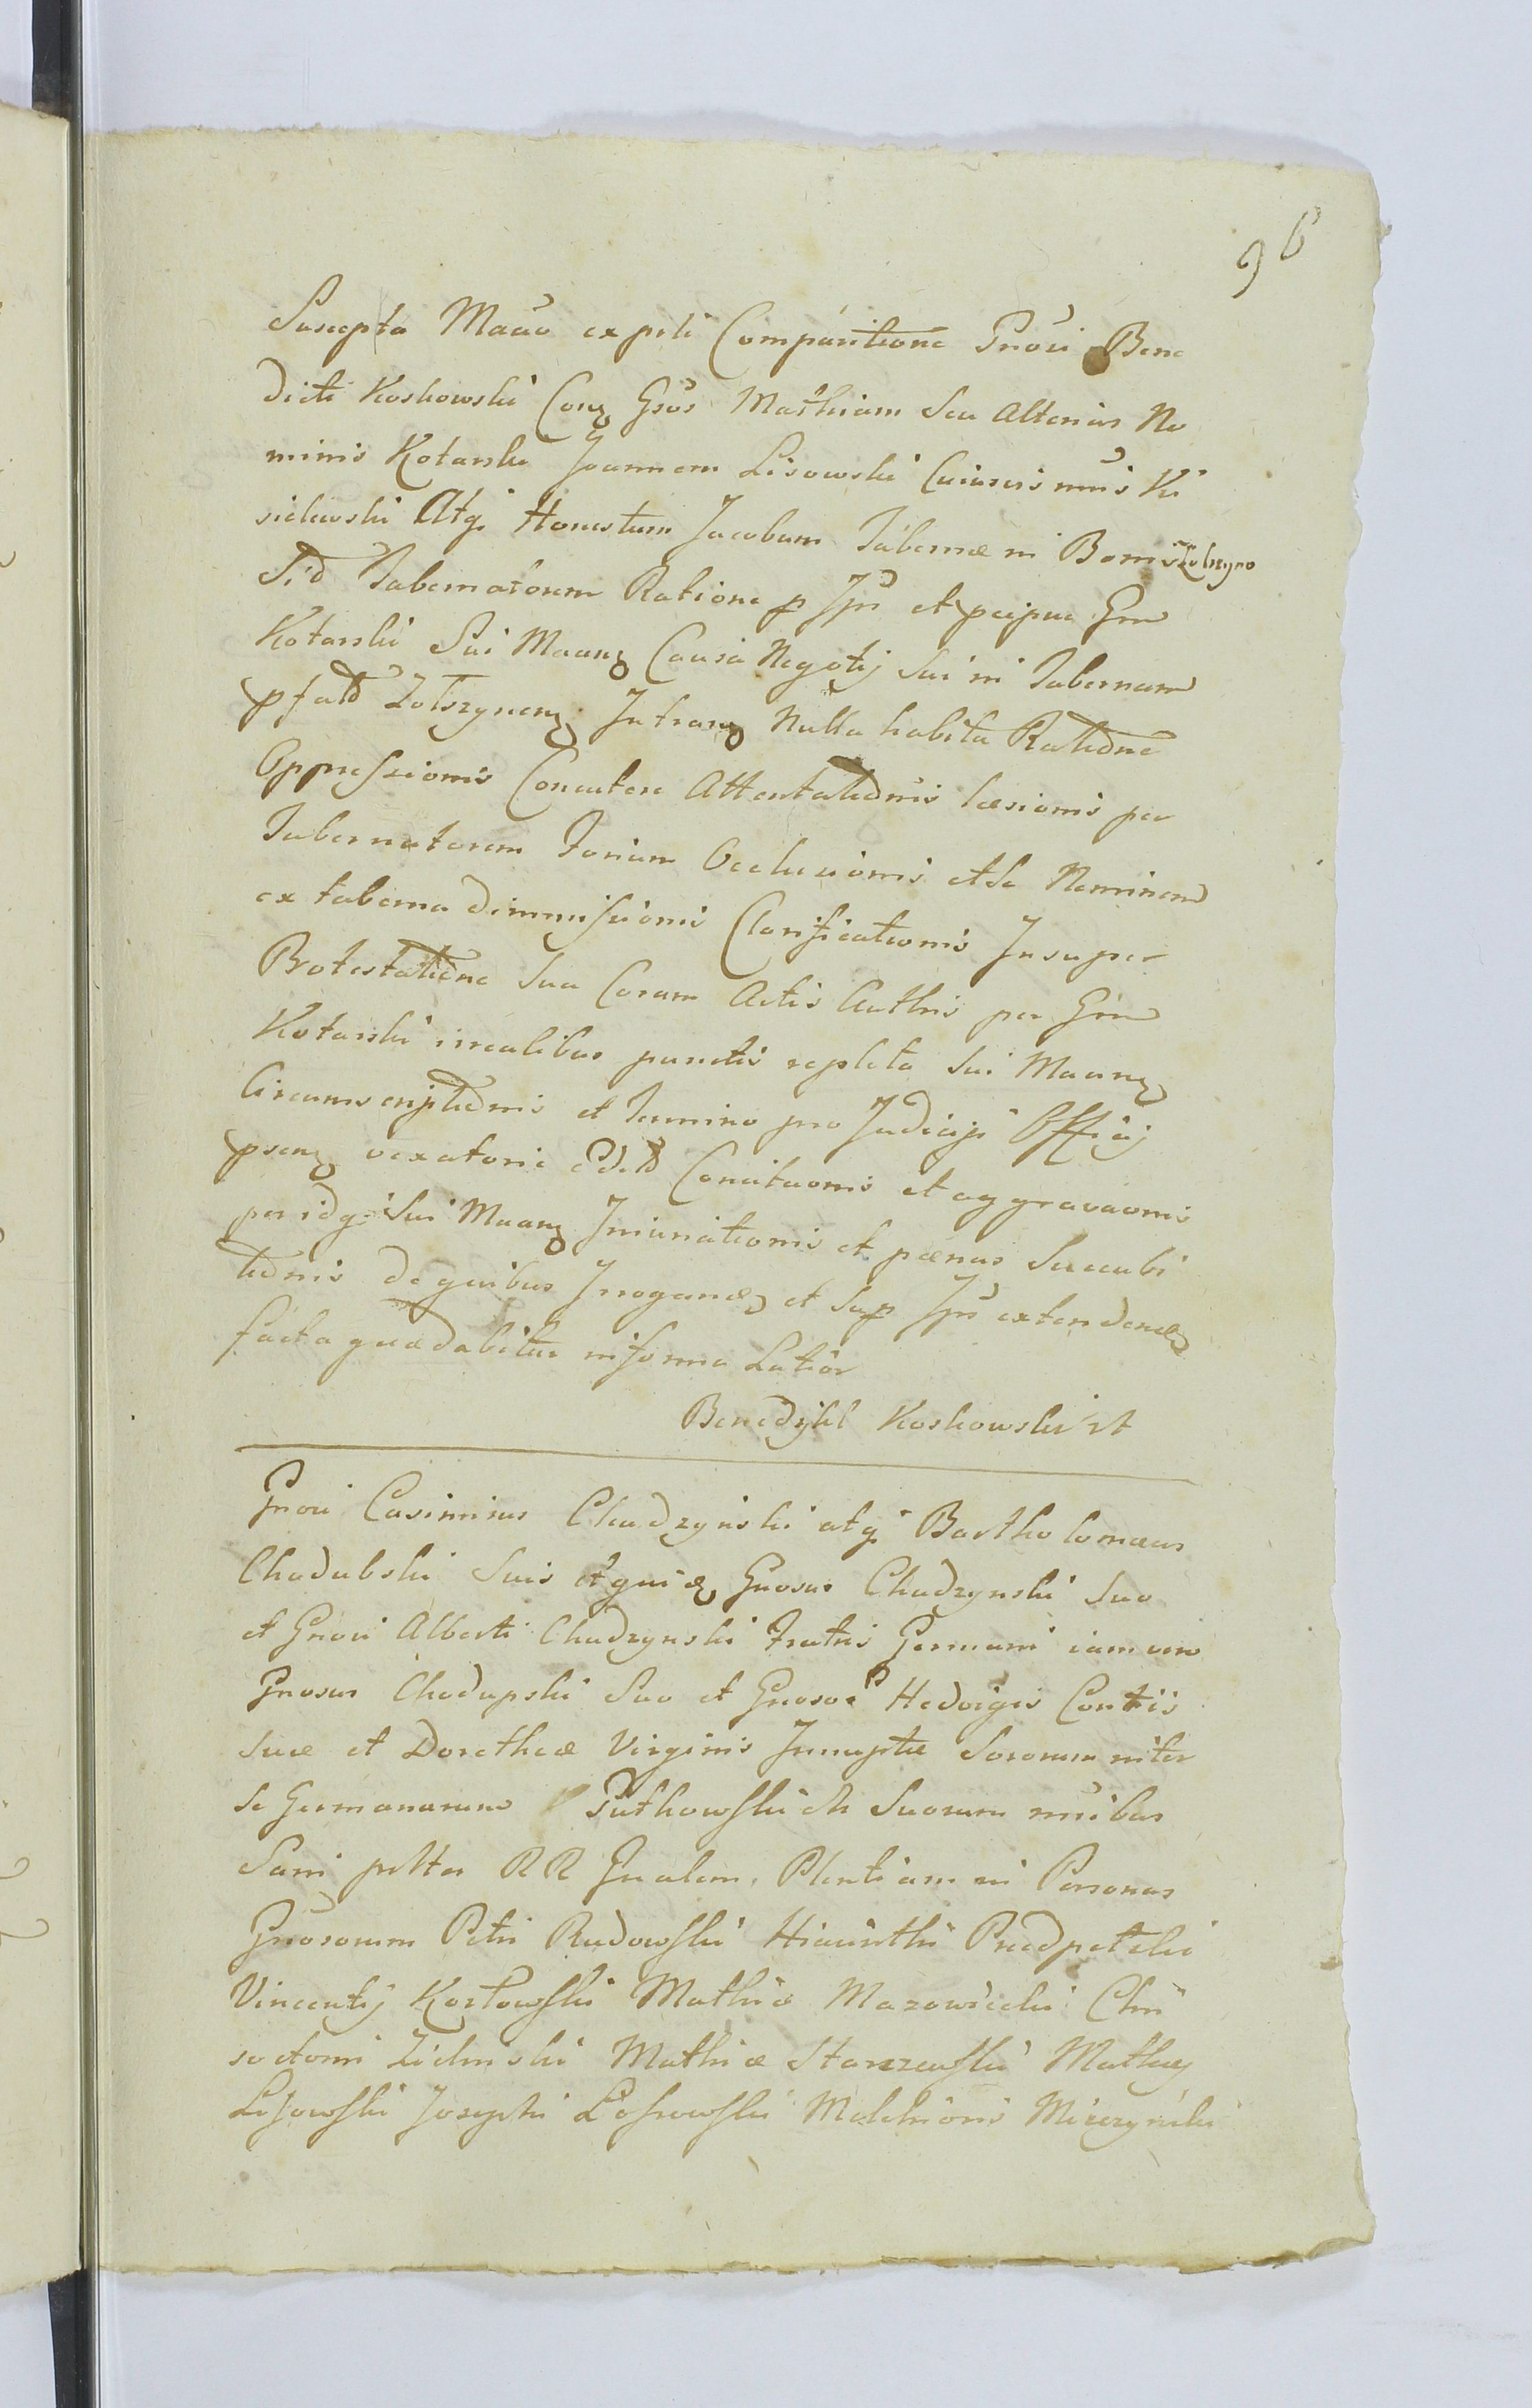 96
Suscepta Mano ex psti Comparitione Gnosi Bene
dicti Koskowski Cong Gsos Mathiam Seu Alterius No
minis Kotarski Joannem Lisowski Cuiusvis nnis Ki
sielewski Atq Honestum Jacobum Tabernæ in Bonis Zolszyno
Sid Tabernatorem Ratione p Ips et pcipue Gm
Kotarski Sui Maang Causa Negotij Sui in Tabernam
pfatd Zolszyneng Intrang Nulla habita Ratione
Oppressionis Concutere Attentationis læsionis per
Tabernatorem Forium Occlusionis et Se Neminem
ex taberna dimmissionis Clarificationis Insuper
Protestatione Sua Coram Actis Authis per Gm
Kotarski irrealibus punctis repleta Sui Maang
Circumscriptionis et Termino pro Judicijs Officij
pseng vexatorie Edito Concitaonis et aggravaonis
per idq Sui Maang Iniuriationis et pænas Succubi
tionis de quibus Irrogand et Sup Ips extendend
facta quædabitur in forma Latior
Benedykt Koskowski rt
Gnosi Casimirus Chudzynski atq Bartholomæus
Chadubski Suis et quid Gnosus Chudzynski Suo
et Gnosi Alberti Chudzynski Fratris Germani iam vero
Gnosus Chodupski Suo et Gnosæ Hedvigis Contis
Suæ et Dorotheæ Virginis Innuptæ Sororum inter
se Germanarum Putkowskich Suorum nnibus
Sani pstter RR Gnalem, Plentiam in Personas
Gnosorum Petri Rudowski Hiacinthi Przedpelski
Vincentij Kozłowski Mathiæ Mazowiecki Chri
sostomi Zielinski Mathiæ Starzewski Mathæj
Lisowski Josephi Lossowski Melchioris Mieczynski